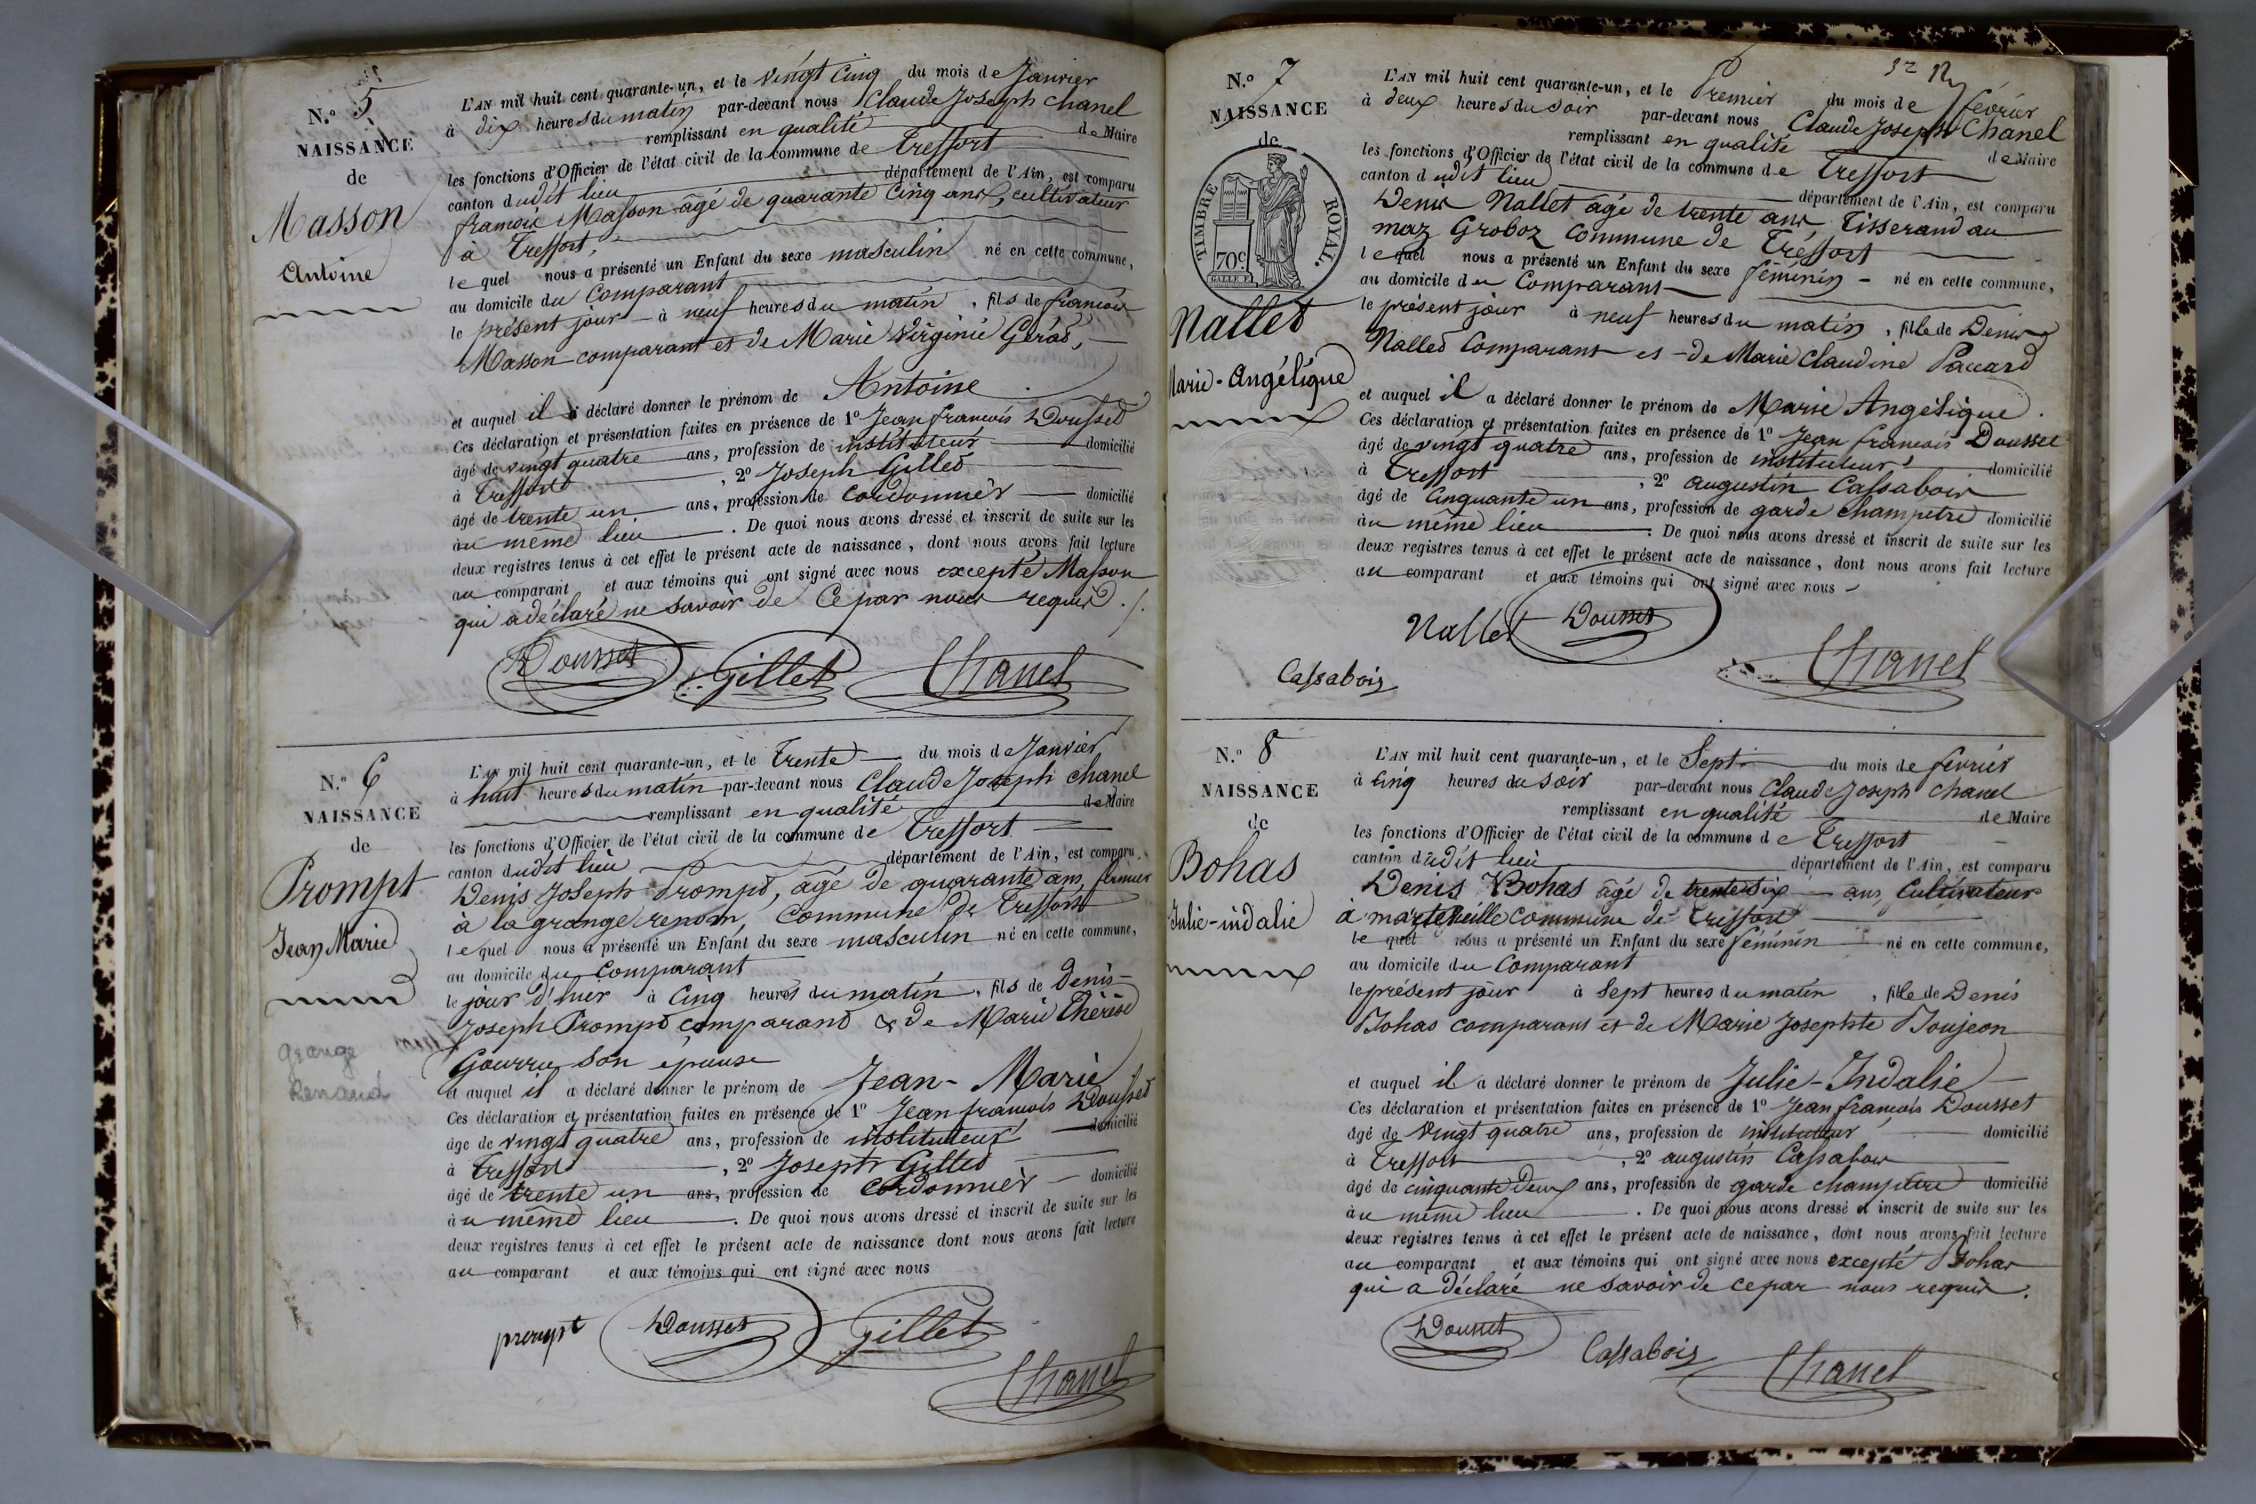 N.o 5
NAISSANCE
de
Masson
Antoine
L'AN mil huit cent quarante-un, et le vingt cinq du mois de Janvier
à dix heures du matin par-devant nous Claude Joseph Chanel
remplissant en qualité de Maire
les fonctions d'Officier de l'état civil de la commune de Treffort
canton dudit lieu département de l'Ain, est comparu
françois Masson âgé de quarante cinq ans, cultivateur
à Treffort,
lequel nous a présenté un Enfant du sexe masculin né en cette commune,
au domicile du Comparant
le présent jour à neuf heures du matin, fils de françois
Masson comparant et de Marie Virginie
et auquel il a déclaré donner le prénom de Antoine
Ces déclaration et présentation faites en présence de 1º Jean françois Dousset
âgé de vingt quatre ans, profession de instituteur domicilié
à Treffort, 2º Joseph Gillet
âgé de trente un ans, profession de cordonnier domicilié
au même lieu. De quoi nous avons dressé et inscrit de suite sur les
deux registres tenus à cet effet le présent acte de naissance, dont nous avons fait lecture
au comparant et aux témoins qui ont signé avec nous excepté Masson
qui a déclaré ne savoir de ce par nous requis ./.
Dousset Gillet Chanel
N.o 6
NAISSANCE
de
Prompt
Jean Marie
grange
Renaud
L'AN mil huit cent quarante-un, et le trente du mois de Janvier
à huit heures du matin par-devant nous Claude Joseph Chanel
remplissant en qualité de Maire
les fonctions d'Officier de l'état civil de la commune de Treffort
canton dudit lieu département de l'Ain, est comparu
Denis Joseph Prompt, âgé de quarante ans, fermier
à la grange renom, Commune de Treffort
lequel nous a présenté un Enfant du sexe masculin né en cette commune,
au domicile du Comparant
le jour d'hier à Cinq heures du matin, fils de Denis
Joseph Prompt comparant & de Marie Thérèse
son épouse
et auquel il a déclaré donner le prénom de Jean-Marie
Ces déclaration et présentation faites en présence de 1º Jean françois Dousset
âgé de vingt quatre ans, profession de instituteur domicilié
à Treffort, 2º Joseph Gillet
âgé de trente un ans, profession de cordonnier domicilié
au même lieu. De quoi nous avons dressé et inscrit de suite sur les
deux registres tenus à cet effet le présent acte de naissance dont nous avons fait lecture
au comparant et aux témoins qui ont signé avec nous
prompt Dousset Gillet
Chanel
N.o 7
NAISSANCE
de
TIMBRE ROYAL.
70c
Nallet
Marie-Angélique
L'AN mil huit cent quarante-un, et le Premier du mois de février
à deux heures du soir par-devant nous Claude Joseph Chanel
remplissant en qualité de Maire
les fonctions d'Officier de l'état civil de la commune de Treffort
canton dudit lieu département de l'Ain, est comparu
Denis Nallet âgé de trente ans, Tisserand au
maz Groboz Commune de Treffort
lequel nous a présenté un Enfant du sexe féminin né en cette commune,
au domicile du Comparant
le présent jour à neuf heures du matin, fille de Denis
Nallet Comparant et de Marie Claudine Paccard
et auquel il a déclaré donner le prénom de Marie Angélique.
Ces déclaration et présentation faites en présence de 1º Jean francois Dousset
âgé de vingt quatre ans, profession de instituteur domicilié
à Treffort, 2º augustin Cassabois
âgé de Cinquante un ans, profession de garde champêtre domicilié
au même lieu. De quoi nous avons dressé et inscrit de suite sur les
deux registres tenus à cet effet le présent acte de naissance, dont nous avons fait lecture
au comparant et aux témoins qui ont signé avec nous
Nallet Dousset
Cassabois Chanel
N.o 8
NAISSANCE
de
Bohas
Julie-indalie
L'AN mil huit cent quarante-un, et le Sept du mois de février
à Cinq heures du soir par-devant nous Claude Joseph Chanel
remplissant en qualité de Maire
les fonctions d'Officier de l'état civil de la commune de Treffort
canton dudit lieu département de l'Ain, est comparu
Denis Bohas âgé de trente six ans, Cultivateur
à commune de Treffort
lequel nous a présenté un Enfant du sexe féminin né en cette commune,
au domicile du Comparant
le présent jour à Sept heures du matin, fille de Denis
Bohas comparant et de Marie Josephte Joujeon
et auquel il a déclaré donner le prénom de Julie-Indalie
Ces déclaration et présentation faites en présence de 1º Jean françois Dousset
âgé de vingt quatre ans, profession de instituteur domicilié
à Treffort, 2º augustin Cassabois
âgé de cinquante deux ans, profession de garde champêtre domicilié
au même lieu. De quoi nous avons dressé et inscrit de suite sur les
deux registres tenus à cet effet le présent acte de naissance, dont nous avons fait lecture
au comparant et aux témoins qui ont signé avec nous excepté Bohas
qui a déclaré ne savoir de ce par nous requis.
Dousset Cassabois Chanel